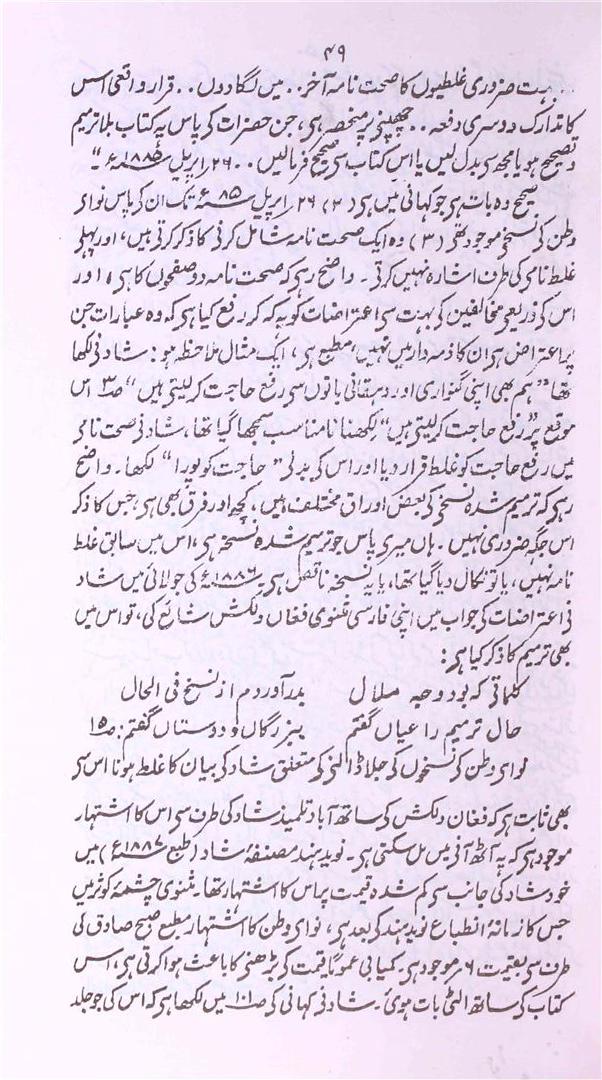 ۴۹
.. بہت ضروری غلطیوں کا صحت نامہ آخر.. میں لگا دوں.. قرار واقعی اس
کا تدارک دوسری دفعہ.. چھپنی پر منحصر ہی، جن حضرات کی پاس یہ کتاب بلا ترمیم
و تصحیح ہو یا مجھ سی بدل لیں یا اس کتاب سی صحیح فرمالیں.. ۲۶ راپریل ۱۸۸۵ء"۔
صحیح وہ بات ہی جو کہانی میں ہی (۲) ۲۶ راپریل ۸۵ء تک ان کی پاس نوای
وطن کی نسخی موجود تھی (۳) وہ ایک صحت نامہ شامل کرنی کا ذکر کرتی ہیں، اور پہلی
غلط نامی کی طرف اشارہ نہیں کرتی۔ واضح رہی کہ صحت نامہ دو صفحوں کا ہی، اور
اس کی ذریعی مخالفین کی بہت سی اعتراضات کو یہ کہہ کر رفع کیا ہی کہ وہ عبارات جن
پر اعتراض ہی ان کا ذمہ دار میں نہیں، مطبع ہی، ایک مثال ملاحظہ ہو: شاد نی لکھا
تھا "ہم بھی اپنی گنواری اور دہقانی باتوں سی رفع حاجت کرلیتی ہیں" ص۳ اس
موقع پر "رفع حاجت کرلیتی ہیں" لکھنا نامناسب سمجھا گیا تھا، شاد نی صحت نامی
میں رفع حاجت کو غلط قرار دیا اور اس کی بدلی "حاجت کو پورا" لکھا۔ واضح
رہی کہ ترمیم شدہ نسخی کی بعض اوراق مختلف ہیں، کچھ اور فرق بھی ہی، جس کا ذکر
اس جگہ ضروری نہیں۔ ہاں میری پاس جو ترمیم شدہ نسخہ ہی، اس میں سابق غلط
نامہ نہیں، یا تو نکال دیا گیا تھا، یا یہ نسخہ ناقص ہی۔ ۱۸۸۶ء کی جولائی میں شاد
نی اعتراضات کی جواب میں اپنی فارسی مثنوی فغان دلکش شائع کی، تو اس میں
بھی ترمیم کا ذکر کیا ہی:
کلماتی کہ بود وجہ ملال   بدر آوردم از نسخ فی الحال
حال ترمیم را عیاں گفتم   ببزرگاں و دوستاں گفتم: ص۱۵
نوای وطن کی نسخوں کی جلا ڈالنی کی متعلق شاد کی بیان کا غلط ہونا اس سی
بھی ثابت ہی کہ فغان دلکش کی ساتھ آباد تلمیذ شاد کی طرف سی اس کا اشتہار
موجود ہی کہ یہ آٹھ آنی میں مل سکتی ہی۔ نوید ہند مصنفۂ شاد (طبع ۱۸۸۷ء) میں
خود شاد کی جانب سی کم شدہ قیمت پر اس کا اشتہار تھا۔ مثنوی چشمۂ کوثر میں
جس کا زمانۂ انطباع نوید ہند کی بعد ہی، نوای وطن کا اشتہار مطبع صبح صادق کی
طرف سی بقیمت ۶ر موجود ہی۔ کمیابی عموماً قیمت کی بڑھنی کا باعث ہوا کرتی ہی، اس
کتاب کی ساتھ الٹی بات ہوئی۔ شاد نی کہانی کی ص۱۰۱ میں لکھا ہی کہ اس کی جو جلد